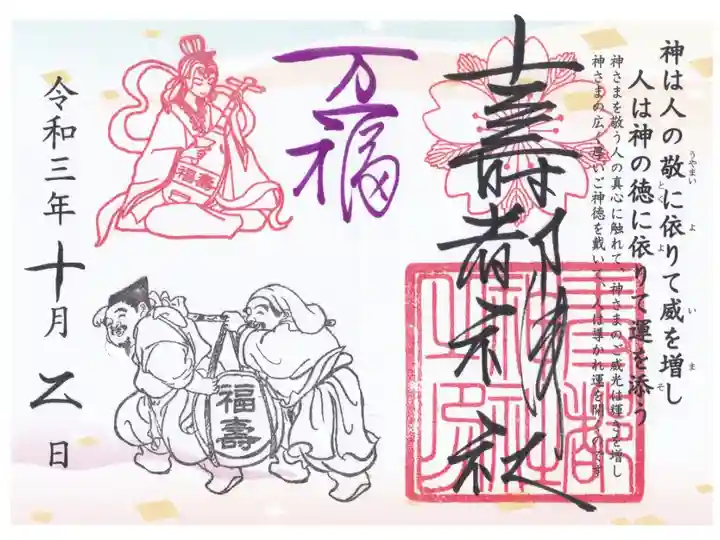 神は人の敬に依りて威を増し
人は神の徳に依りて運を添う
神さまを敬う人の真心に触れて、神さまのご威光は輝きを増し
神さまの広く厚いご神徳を戴いて、人は導かれ運を開くのです
壽都神社
万福
福壽
福壽
令和三年十月乙日